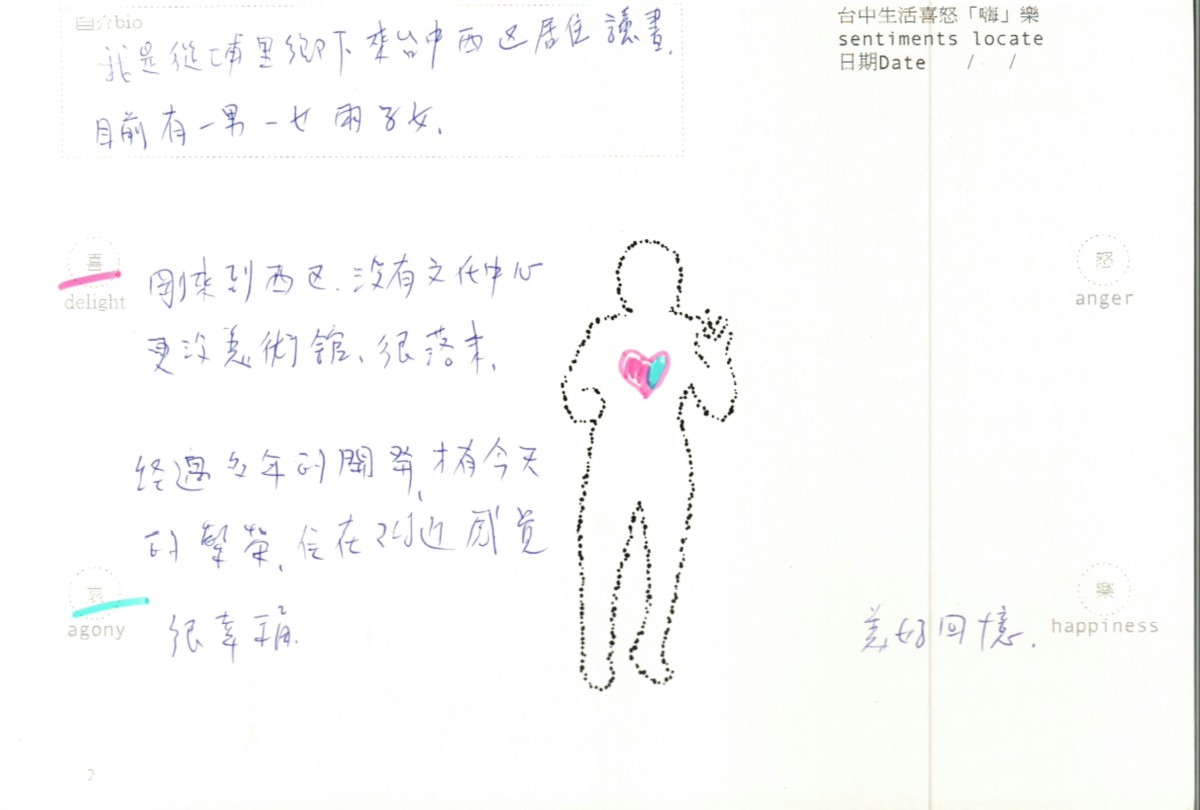 自介bio
我是從埔里鄉下來台中西区居住讀書.
目前有一男一女兩子女.
台中生活喜怒「嗨」樂
sentiments locate
日期Date / /
喜
delight
剛來到西区.沒有文化中心
更沒美術館、很落末.
経過多年的開發,才有今天
的繁榮,住在附近感覚
很幸福.
哀
agony
怒
anger
樂
happiness
美好回憶.
2